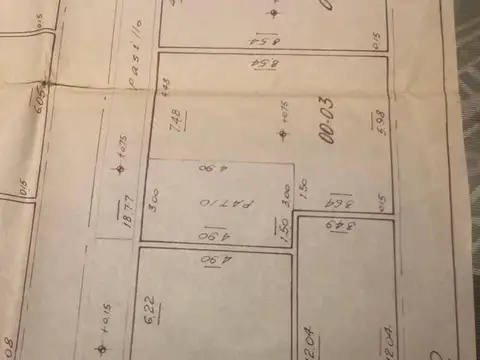 8.54
0.15
pasillo
8.54
0.15
4.48
6.05
7.48
+0.75
00-03
5.98
+0.75
4.90
0.15
3.00
PATIO
3.00
1.50
3.64
0.15
18.77
4.90
1.50
3.49
4.90
6.22
+0.15
12.04
12.04